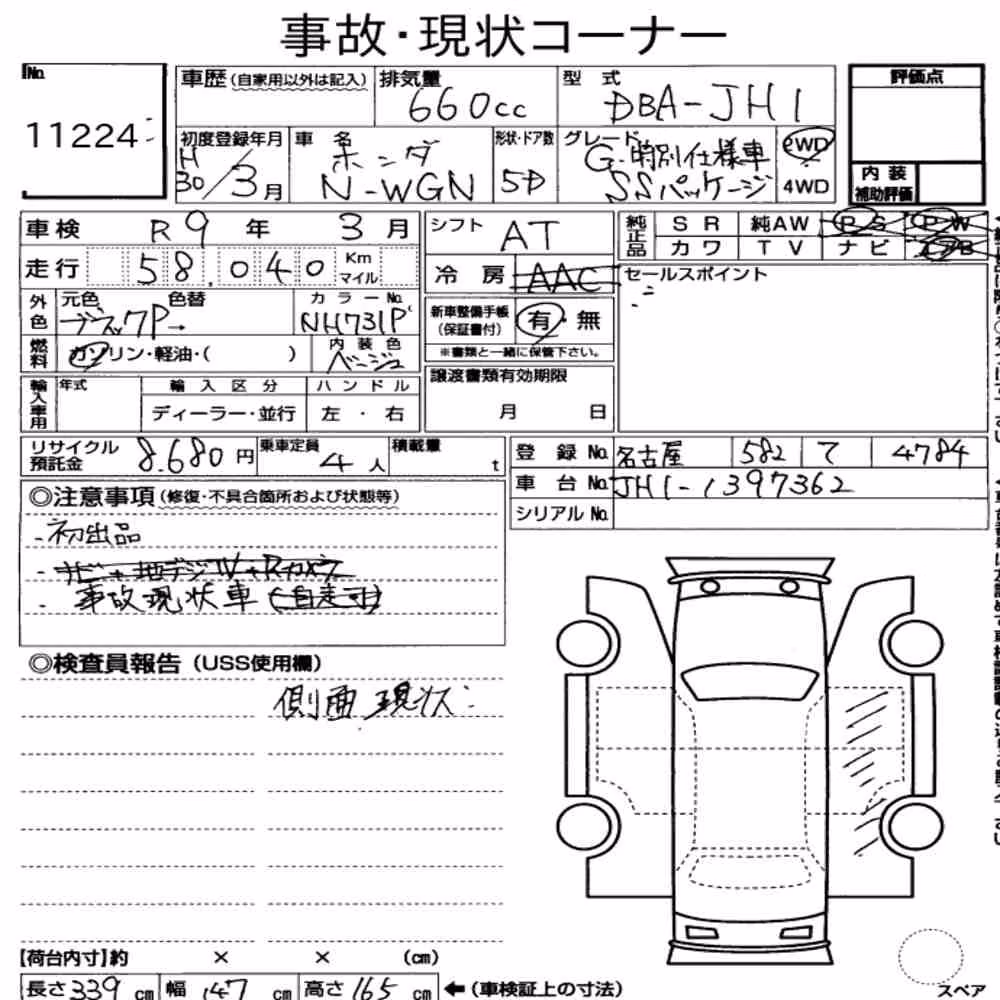 事故・現状コーナー
No. 11224
車歴（自家用以外は記入）
排気量 660cc
型式 DBA-JH1
評価点
初度登録年月 H30/3月
車名 ホンダ N-WGN
形状・ドア数 5D
グレード G・特別仕様車 SSパッケージ
2WD
4WD
内装補助評価
車検 R9年 3月
シフト AT
純正品 SR 純AW PS PW
カワ TV ナビ
走行 58,040 Km マイル
冷房 AAC
セールスポイント
外色 元色 ブラックP→ 色替 カラーNo. NH731P
新車整備手帳（保証書付） 有・無
※書類と一緒に保管下さい。
燃料 ガソリン・軽油・（ ） 内装色 ベージュ
輸入車用 年式 輸入区分 ハンドル
ディーラー・並行 左・右
譲渡書類有効期限
月 日
リサイクル預託金 8,680円 乗車定員 4人 積載量 t
登録No. 名古屋 582 て 4784
車台No. JH1-1397362
シリアルNo.
◎注意事項（修復・不具合箇所および状態等）
・初出品
・ナビ+地デジTV+Rカメラ
・事故現状車（自走可）
◎検査員報告（USS使用欄）
側面現状
【荷台内寸】約 × × （cm）
長さ339cm 幅147cm 高さ165cm ←（車検証上の寸法）
スペア